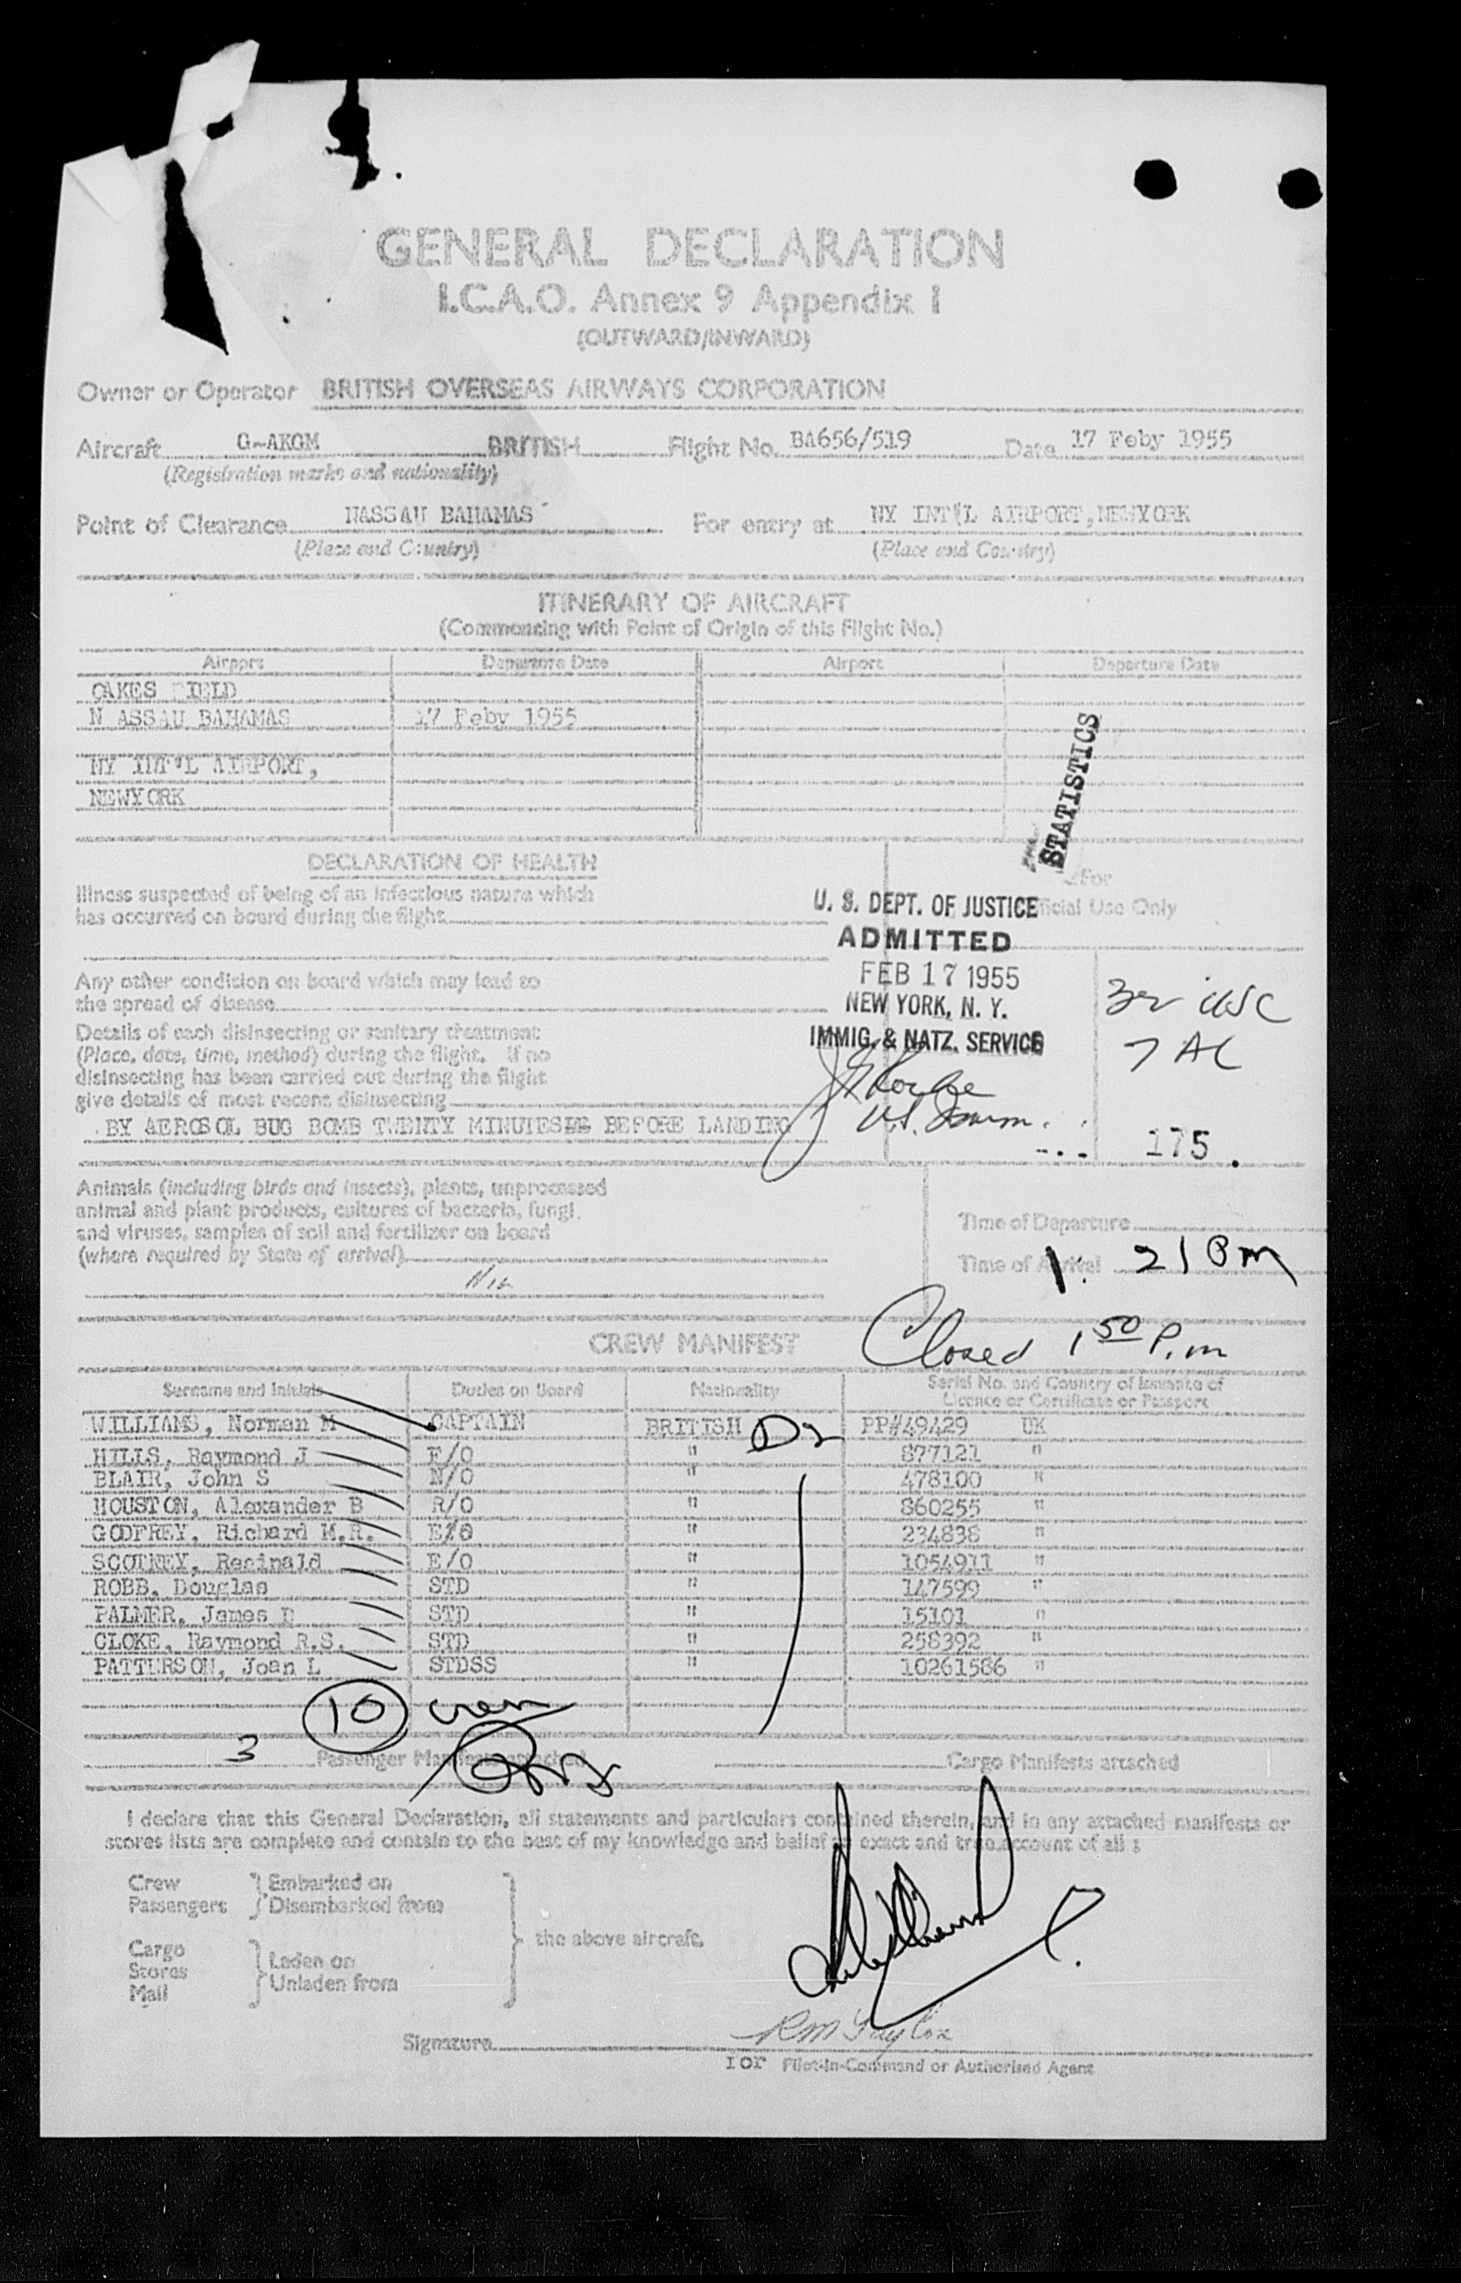 GENERAL DECLARATION
I.C.A.O. Annex 9 Appendix 1
(OUTWARD/INWARD)
Owner or Operator BRITISH OVERSEAS AIRWAYS CORPORATION
Aircraft G-AKGM BRITISH Flight No. BA656/519 Date 17 Feby 1955
(Registration marks and nationality)
Point of Clearance NASSAU BAHAMAS For entry at NY INT'L AIRPORT, NEWYORK
(Place and Country) (Place and Country)
ITINERARY OF AIRCRAFT
(Commencing with Point of Origin of this Flight No.)
Airport Departure Date Airport Departure Date
OAKES FIELD
N ASSAU BAHAMAS 17 Feby 1955
NY INT'L AIRPORT,
NEWYORK
STATISTICS
DECLARATION OF HEALTH
Illness suspected of being of an infectious nature which
has occurred on board during the flight
For
Official Use Only
U. S. DEPT. OF JUSTICE
ADMITTED
FEB 17 1955
NEW YORK, N. Y.
IMMIG. & NATZ. SERVICE
32 USC
7 AL
175
Any other condition on board which may lead to
the spread of disease
Details of each disinsecting or sanitary treatment
(Place, date, time, method) during the flight. If no
disinsecting has been carried out during the flight
give details of most recent disinsecting
BY AEROSOL BUG BOMB TWENTY MINUTES BEFORE LANDING
Animals (including birds and insects), plants, unprocessed
animal and plant products, cultures of bacteria, fungi
and viruses, samples of soil and fertilizer on board
(where required by State of arrival)
Nil
Time of Departure
Time of Arrival 1: 21 PM
Closed 1 50 P.m
CREW MANIFEST
Surname and Initials Duties on Board Nationality Serial No. and Country of Issuance of
Licence or Certificate or Passport
WILLIAMS, Norman M CAPTAIN BRITISH PP#49429 UK
HILLS, Raymond J F/O " 877121 "
BLAIR, John S N/O " 478100 "
HOUSTON, Alexander B R/O " 860255 "
GODFREY, Richard M.R. E/O " 234838 "
SCOTNEY, Reginald E/O " 1054911 "
ROBB, Douglas STD " 147599 "
PALMER, James D STD " 15101 "
CLOKE, Raymond R.S. STD " 258392 "
PATTERSON, Joan L STDSS " 10261586 "
10 crew
3 Passenger Manifests attached Cargo Manifests attached
I declare that this General Declaration, all statements and particulars contained therein, and in any attached manifests or
stores lists are complete and contain to the best of my knowledge and belief an exact and true account of all :
Crew Embarked on
Passengers Disembarked from
the above aircraft.
Cargo
Stores Laden on
Mail Unladen from
Signature RM Taylor
For Pilot-in-Command or Authorised Agent